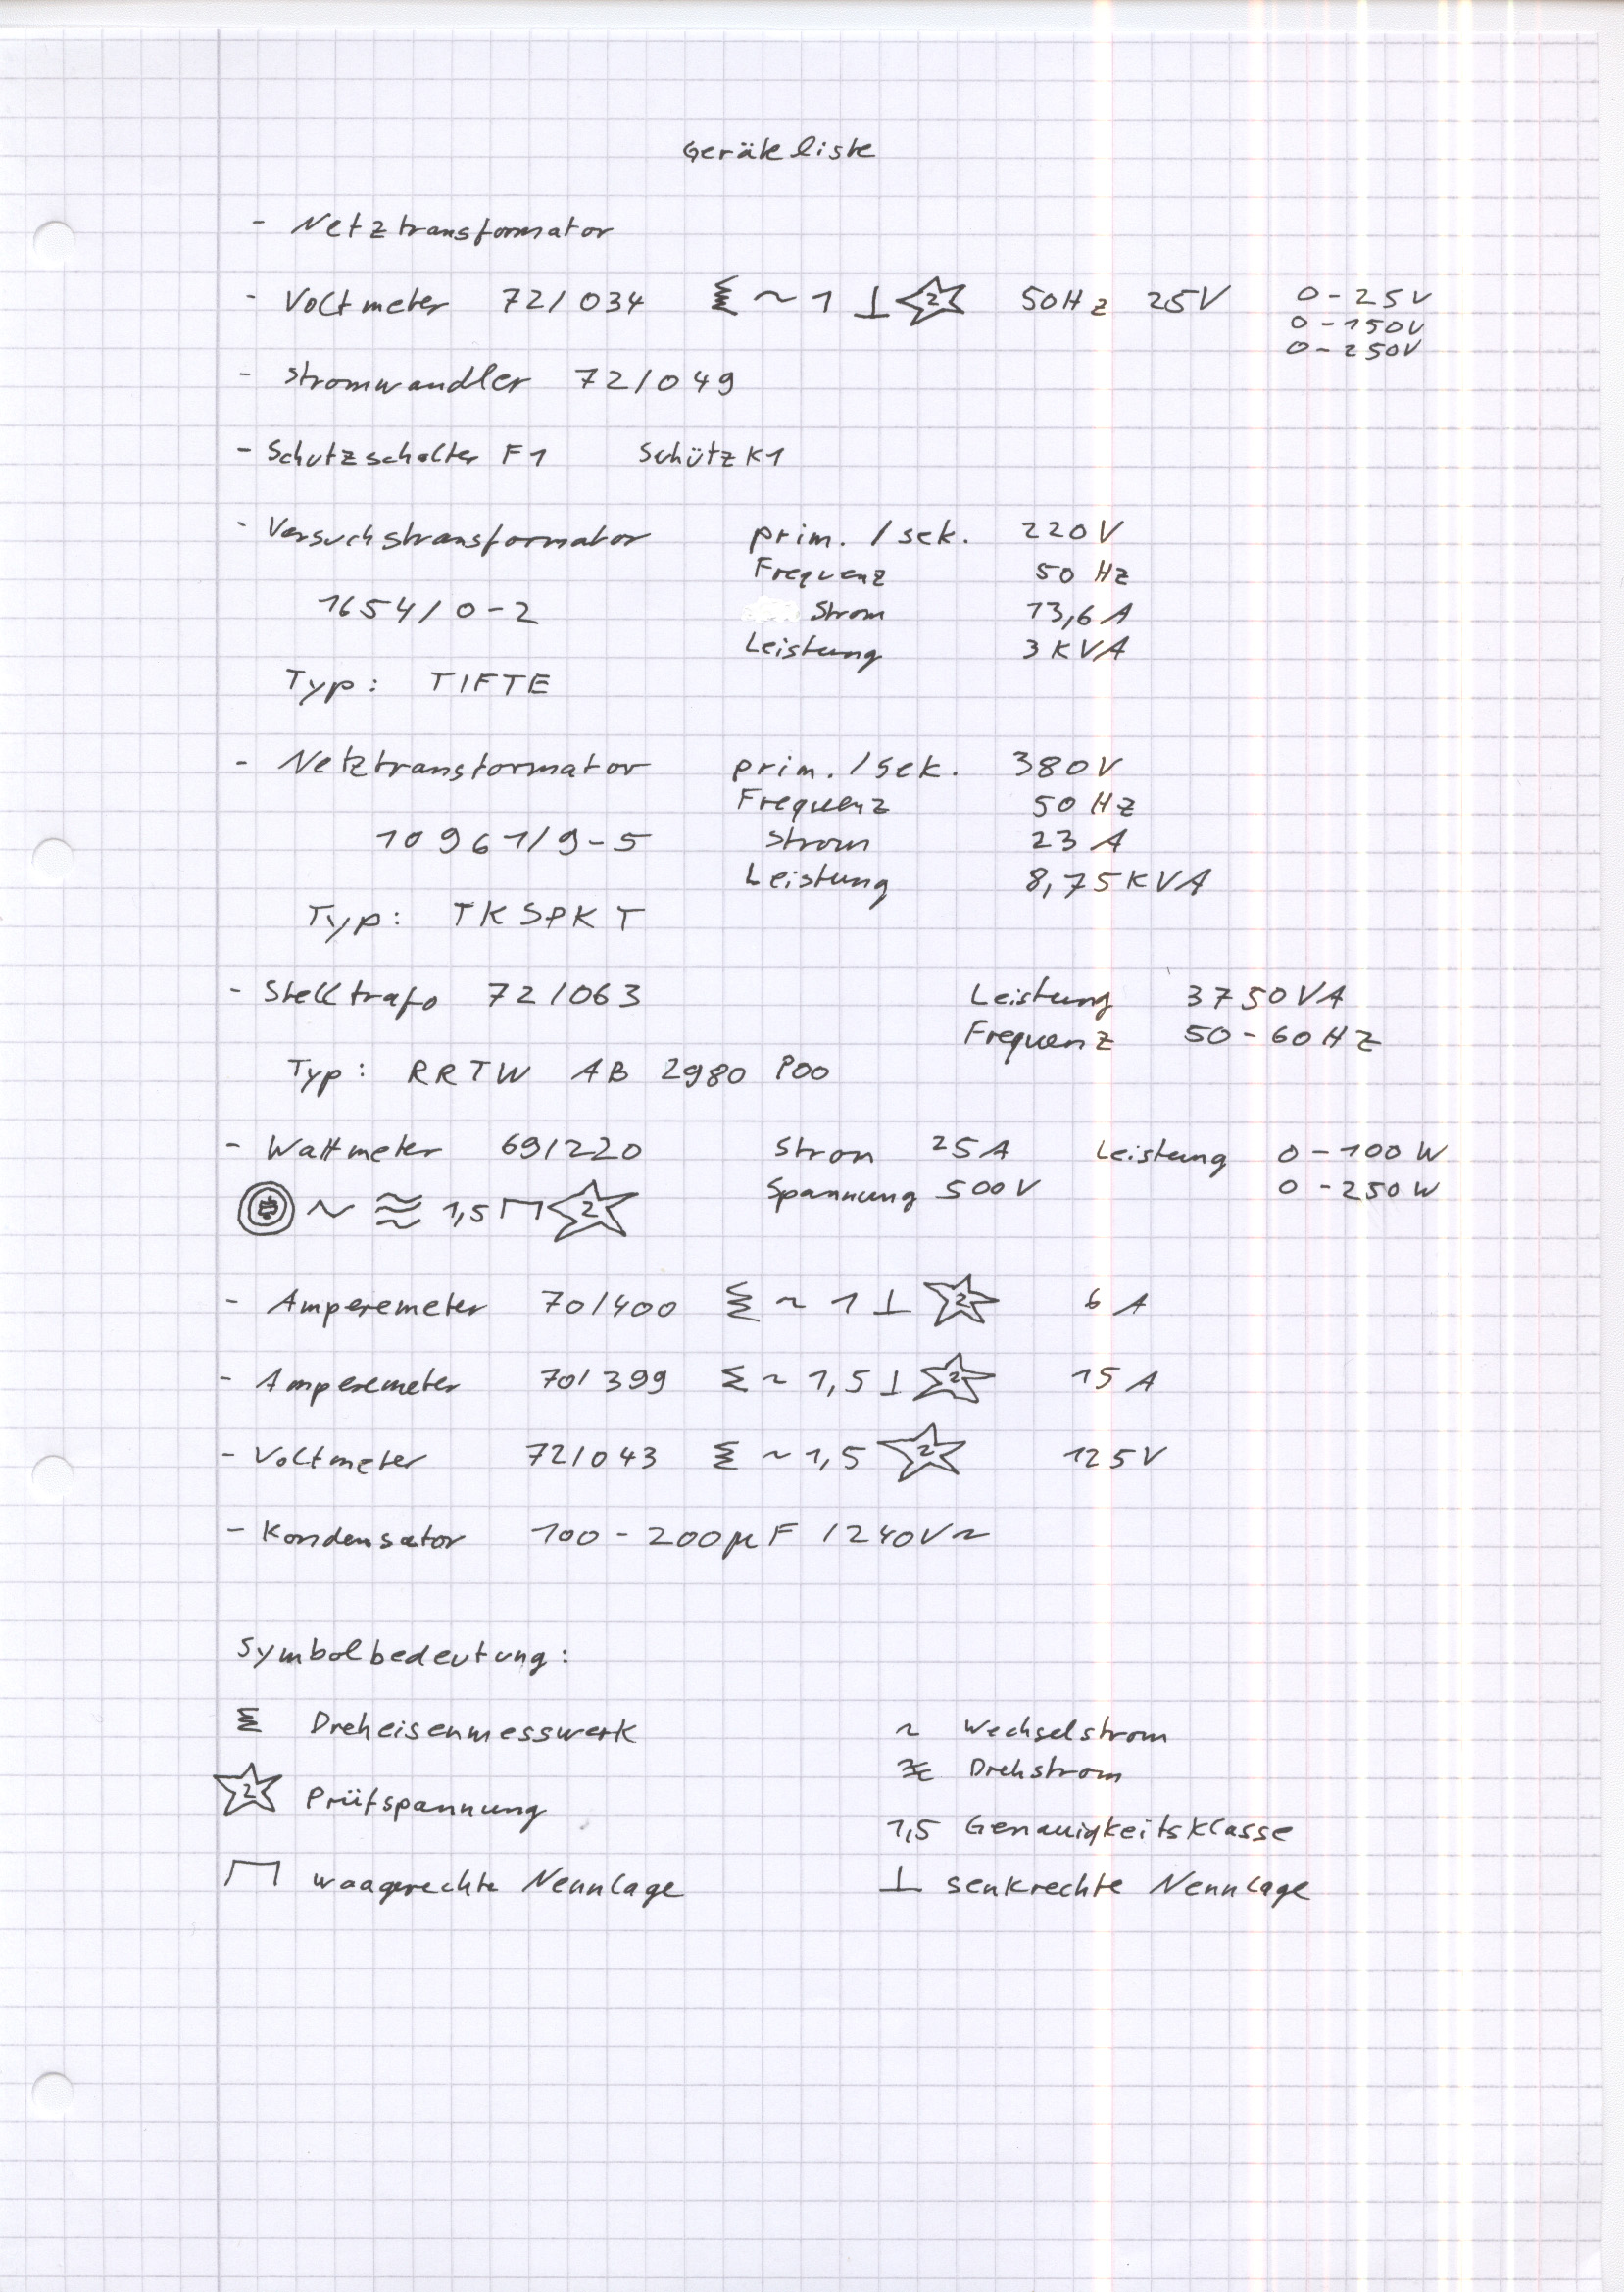 Geräteliste
- Netztransformator
- Voltmeter 72/034 ~ 1 ⊥ 2 50Hz 25V 0-25V
0-150V
0-250V
- Stromwandler 72/049
- Schutzschalter F1 Schütz K1
- Versuchstransformator prim. / sek. 220V
Frequenz 50 Hz
1654/0-2 Strom 13,6 A
Leistung 3 KVA
Typ: TIFTE
- Netztransformator prim. / sek. 380V
Frequenz 50 Hz
10961/9-5 Strom 23 A
Leistung 8,75 KVA
Typ: TKSPKT
- Stelltrafo 72/063 Leistung 3750VA
Frequenz 50-60HZ
Typ: RRTW AB 2980 P00
- Wattmeter 69/220 Strom 25A Leistung 0-100W
Spannung 500V 0-250W
~ ≋ 1,5 ⊓ 2
- Amperemeter 70/400 ~ 1 ⊥ 2 6 A
- Amperemeter 70/399 ~ 1,5 ⊥ 2 15 A
- Voltmeter 72/043 ~ 1,5 2 125V
- Kondensator 100-200µF /240V~
Symbolbedeutung:
Dreheisenmesswerk ~ Wechselstrom
≋ Drehstrom
2 Prüfspannung
1,5 Genauigkeitsklasse
⊓ waagerechte Nennlage ⊥ senkrechte Nennlage